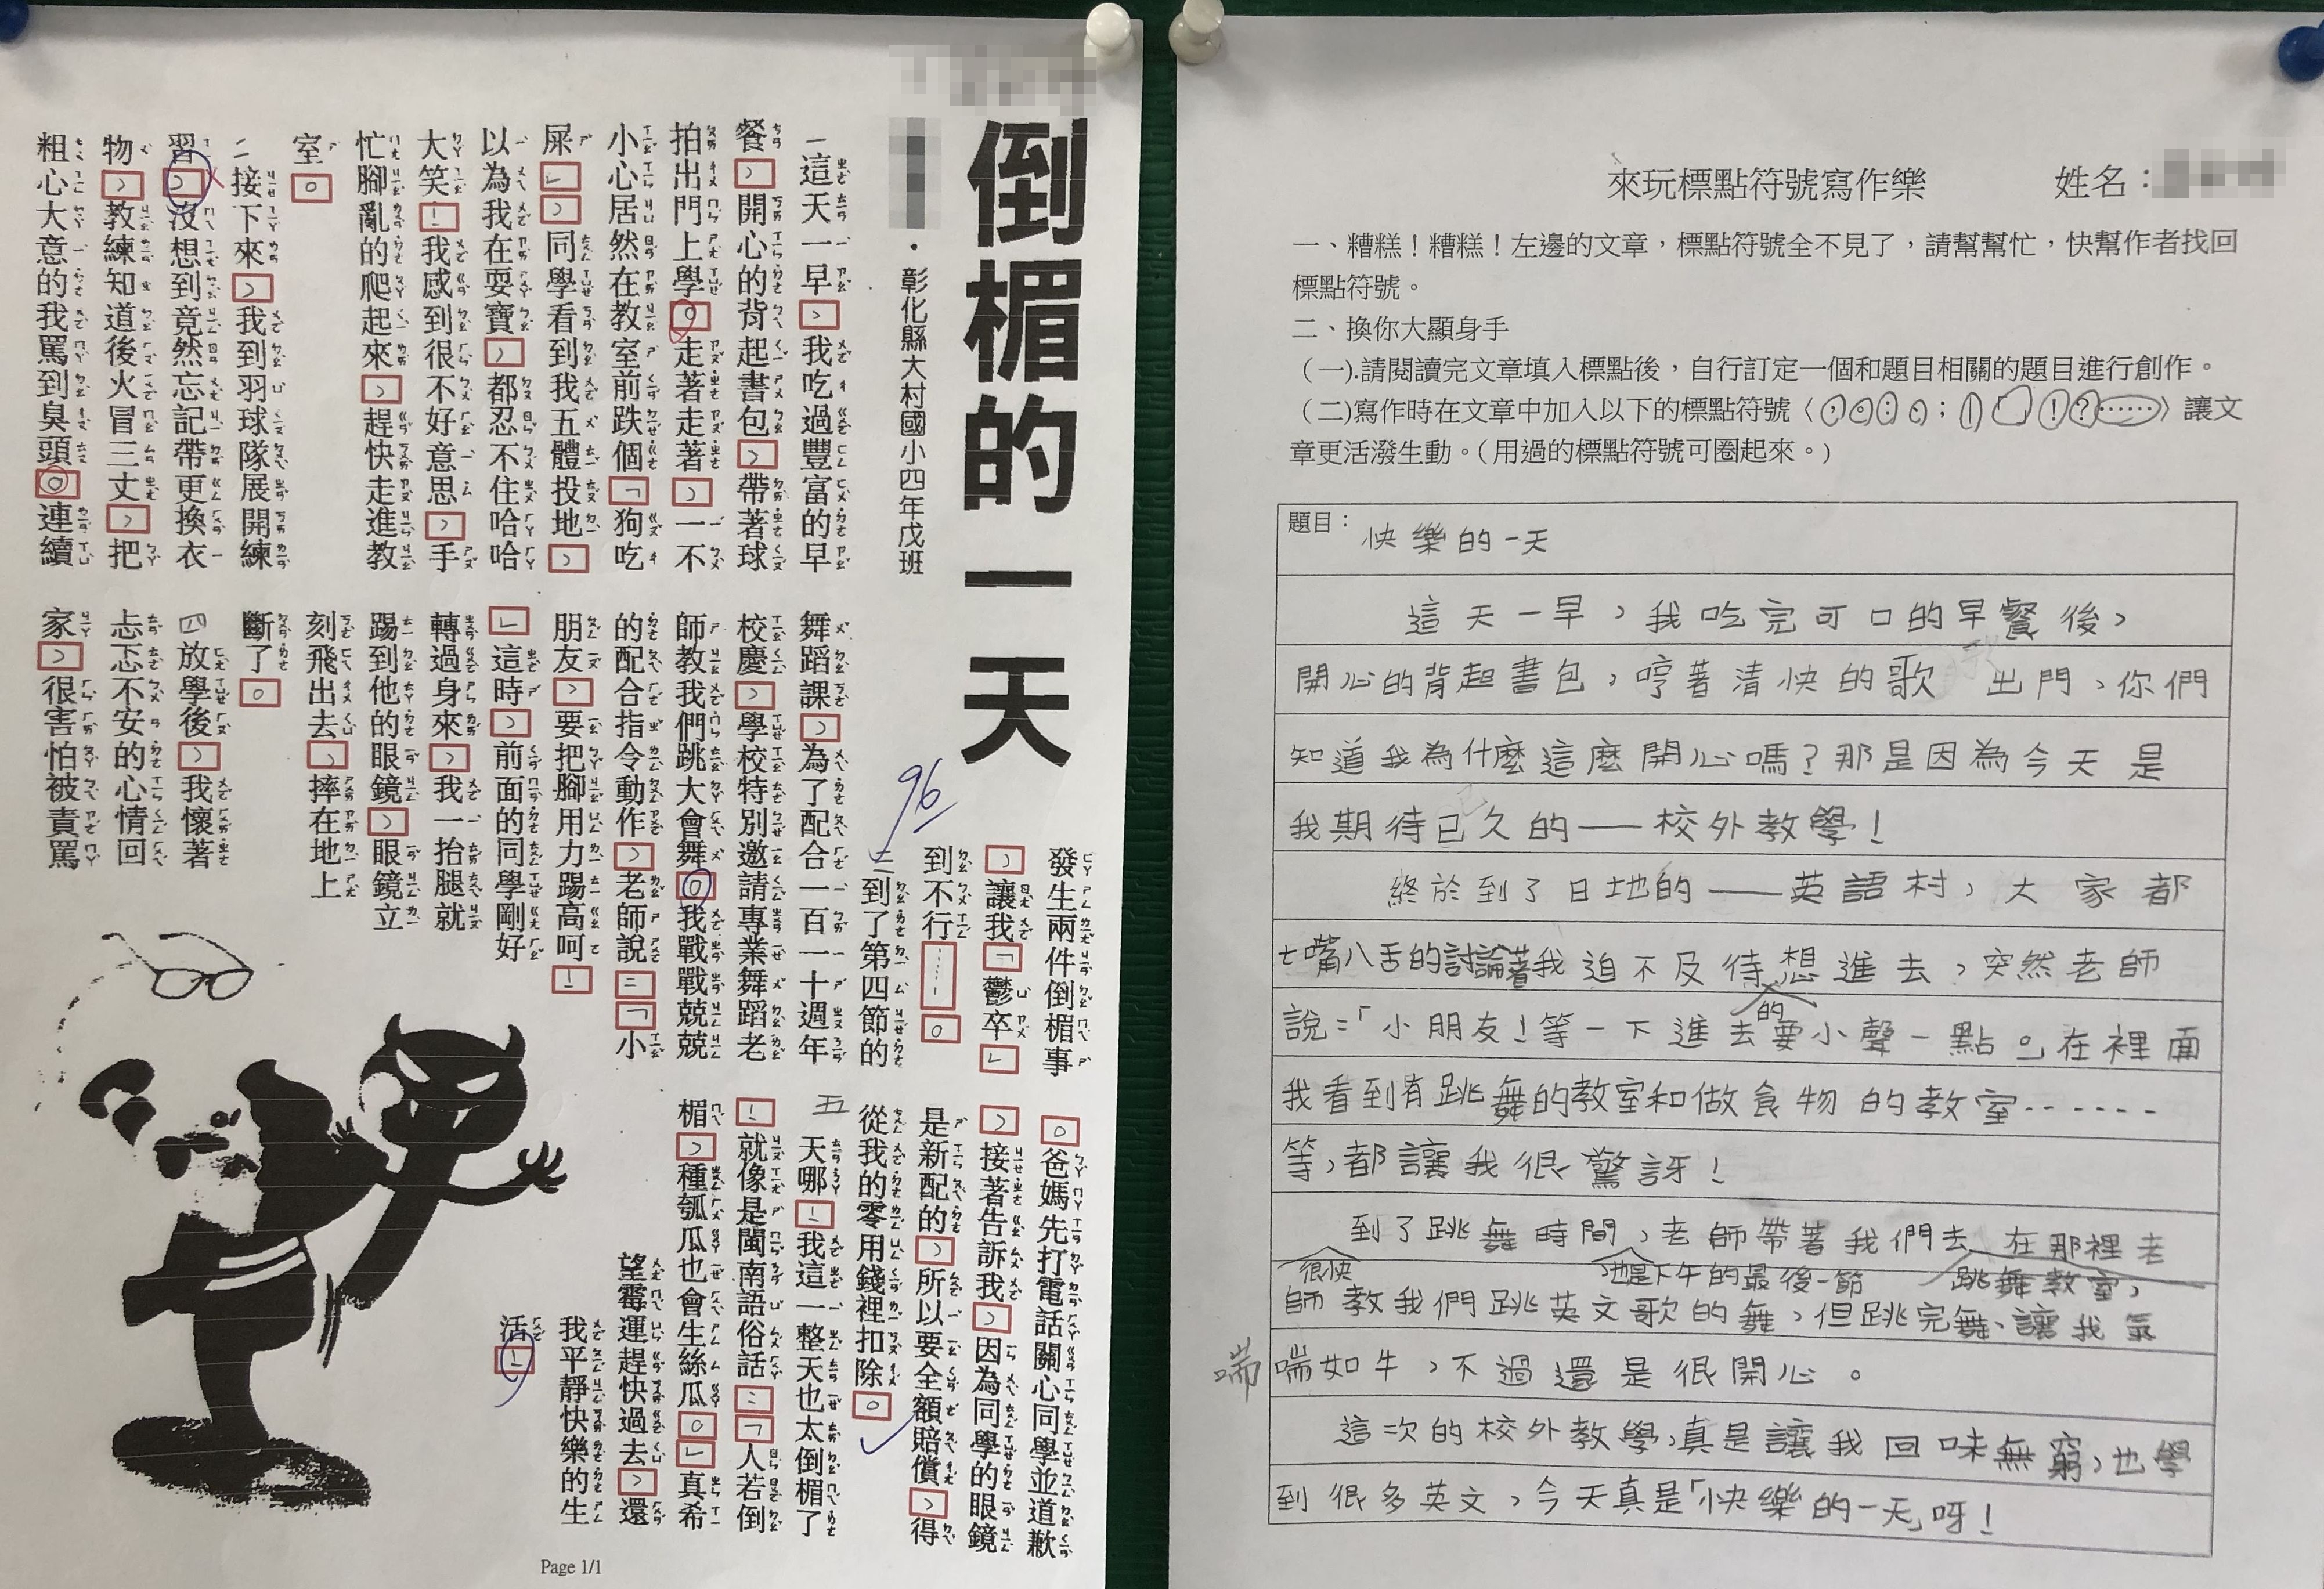 倒楣的一天
・彰化縣大村國小四年戊班
一這天一早，我吃過豐富的早
餐，開心的背起書包，帶著球
拍出門上學。走著走著，一不
小心居然在教室前跌個「狗吃
屎」，同學看到我五體投地，
以為我在耍寶，都忍不住哈哈
大笑！我感到很不好意思，手
忙腳亂的爬起來，趕快走進教
室。
二接下來，我到羽球隊展開練
習，沒想到竟然忘記帶更換衣
物，教練知道後火冒三丈，把
粗心大意的我罵到臭頭。連續
發生兩件倒楣事
，讓我「鬱卒」
到不行……。
三到了第四節的
舞蹈課，為了配合一百一十週年
校慶，學校特別邀請專業舞蹈老
師教我們跳大會舞。我戰戰兢兢
的配合指令動作，老師說：「小
朋友，要把腳用力踢高呵！
」這時，前面的同學剛好
轉過身來，我一抬腿就
踢到他的眼鏡，眼鏡立
刻飛出去，摔在地上
斷了。
四放學後，我懷著
忐忑不安的心情回
家，很害怕被責罵
。爸媽先打電話關心同學並道歉
，接著告訴我，因為同學的眼鏡
是新配的，所以要全額賠償，得
從我的零用錢裡扣除。
五天哪！我這一整天也太倒楣了
！就像是閩南語俗話：「人若倒
楣，種瓠瓜也會生絲瓜。」真希
望霉運趕快過去，還
我平靜快樂的生
活！
96
Page 1/1
來玩標點符號寫作樂 姓名：
一、糟糕！糟糕！左邊的文章，標點符號全不見了，請幫幫忙，快幫作者找回
標點符號。
二、換你大顯身手
（一）.請閱讀完文章填入標點後，自行訂定一個和題目相關的題目進行創作。
（二）寫作時在文章中加入以下的標點符號〈，。：、；「」！？……〉讓文
章更活潑生動。（用過的標點符號可圈起來。）
題目：快樂的一天
這天一早，我吃完可口的早餐後，
開心的背起書包，哼著清快的歌出門，你們
知道我為什麼這麼開心嗎？那是因為今天是
我期待已久的——校外教學！
終於到了目地的——英語村，大家都
七嘴八舌的討論著我迫不及待的想進去，突然老師
說：「小朋友！等一下進去要小聲一點。」在裡面
我看到有跳舞的教室和做食物的教室……
等，都讓我很驚訝！
很快到了跳舞時間，也是下午的最後一節，老師帶著我們去跳舞教室，在那裡老
師教我們跳英文歌的舞，但跳完舞、讓我氣
喘喘如牛，不過還是很開心。
這次的校外教學，真是讓我回味無窮，也學
到很多英文，今天真是「快樂的一天」呀！